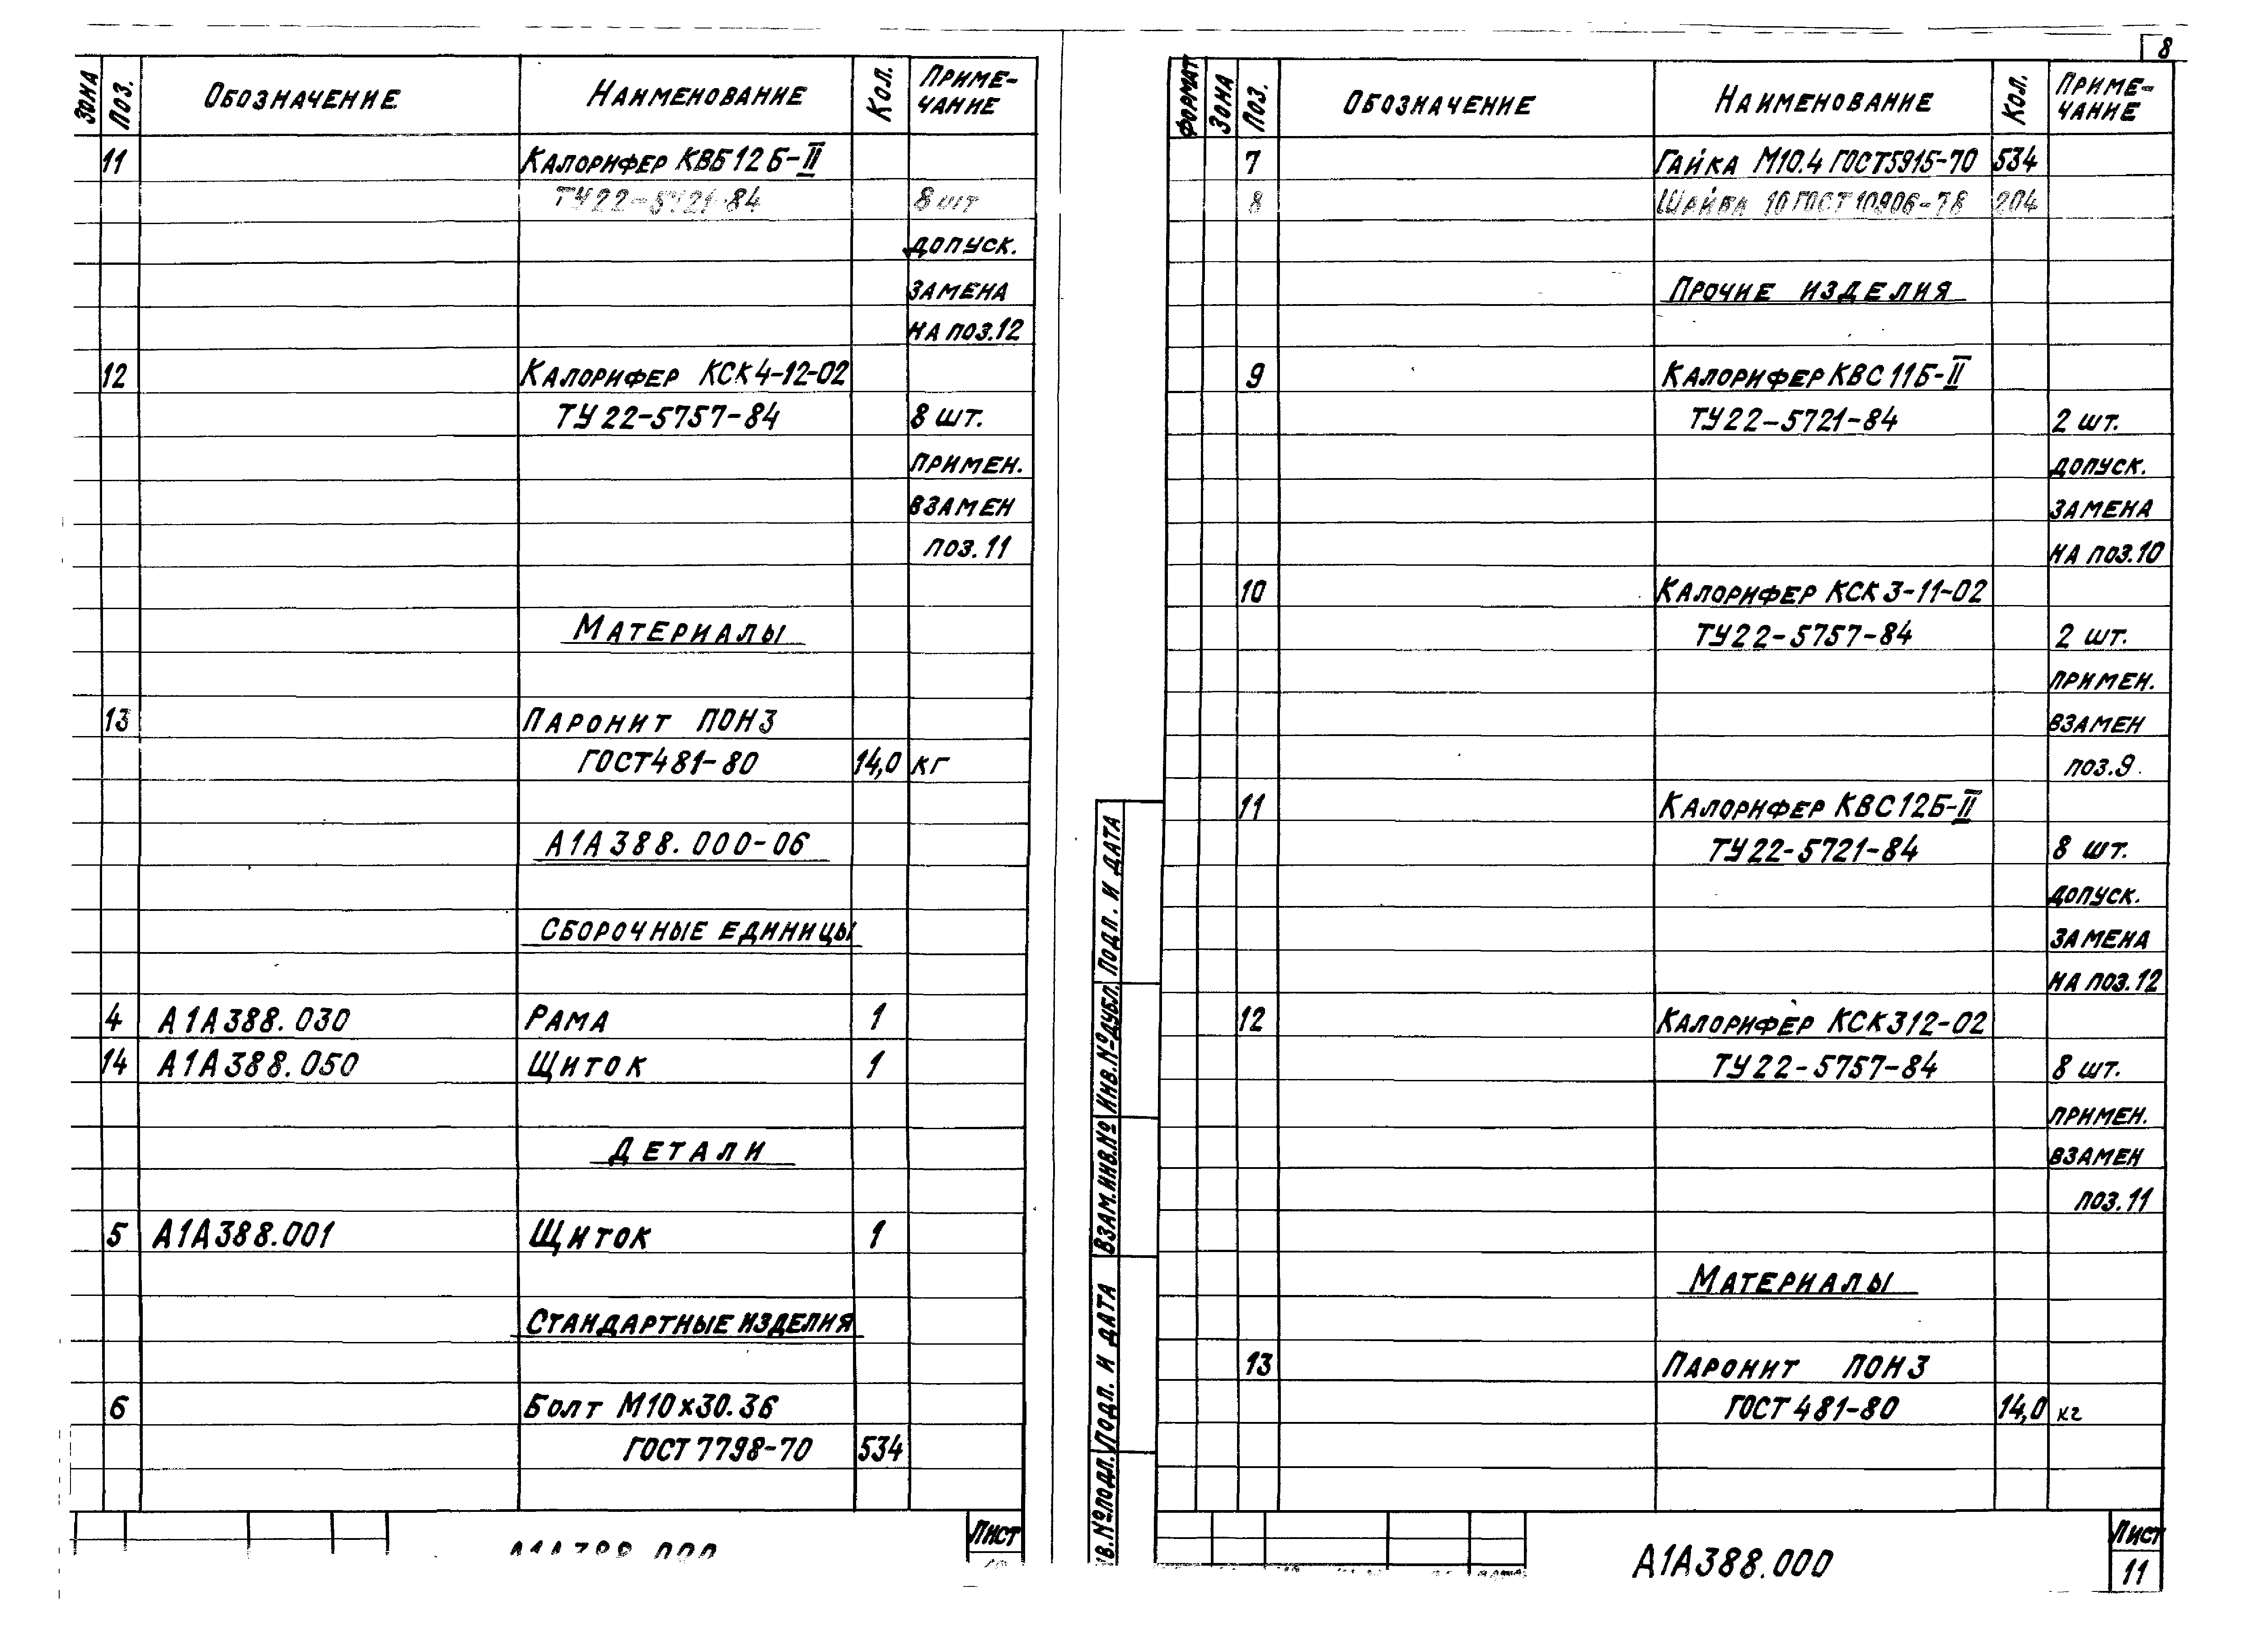 ЗОНА ПОЗ. ОБОЗНАЧЕНИЕ НАИМЕНОВАНИЕ КОЛ. ПРИМЕ-
ЧАНИЕ
11 КАЛОРИФЕР КВБ12Б-II
ТУ22-5721-84 8 шт
ДОПУСК.
ЗАМЕНА
НА ПОЗ.12
12 КАЛОРИФЕР КСК4-12-02
ТУ22-5757-84 8 шт.
ПРИМЕН.
ВЗАМЕН
ПОЗ.11
МАТЕРИАЛЫ
13 ПАРОНИТ ПОН3
ГОСТ481-80 14,0 кг
А1А388.000-06
СБОРОЧНЫЕ ЕДИНИЦЫ
4 А1А388.030 РАМА 1
14 А1А388.050 ЩИТОК 1
ДЕТАЛИ
5 А1А388.001 ЩИТОК 1
СТАНДАРТНЫЕ ИЗДЕЛИЯ
6 БОЛТ М10х30.36
ГОСТ 7798-70 534
А1А388.000
ЛИСТ
8
ФОРМАТ ЗОНА ПОЗ. ОБОЗНАЧЕНИЕ НАИМЕНОВАНИЕ КОЛ. ПРИМЕ-
ЧАНИЕ
7 ГАЙКА М10.4 ГОСТ5915-70 534
8 ШАЙБА 10 ГОСТ 10906-78 204
ПРОЧИЕ ИЗДЕЛИЯ
9 КАЛОРИФЕР КВС11Б-II
ТУ22-5721-84 2 шт.
ДОПУСК.
ЗАМЕНА
НА ПОЗ.10
10 КАЛОРИФЕР КСК3-11-02
ТУ22-5757-84 2 шт.
ПРИМЕН.
ВЗАМЕН
ПОЗ.9
11 КАЛОРИФЕР КВС12Б-II
ТУ22-5721-84 8 шт.
ДОПУСК.
ЗАМЕНА
НА ПОЗ.12
12 КАЛОРИФЕР КСК312-02
ТУ22-5757-84 8 шт.
ПРИМЕН.
ВЗАМЕН
ПОЗ.11
МАТЕРИАЛЫ
13 ПАРОНИТ ПОН3
ГОСТ 481-80 14,0 кг
ПОДП. И ДАТА
ИНВ.№ДУБЛ.
ВЗАМ.ИНВ.№
ПОДП. И ДАТА
№ПОДЛ.
А1А388.000
ЛИСТ
11